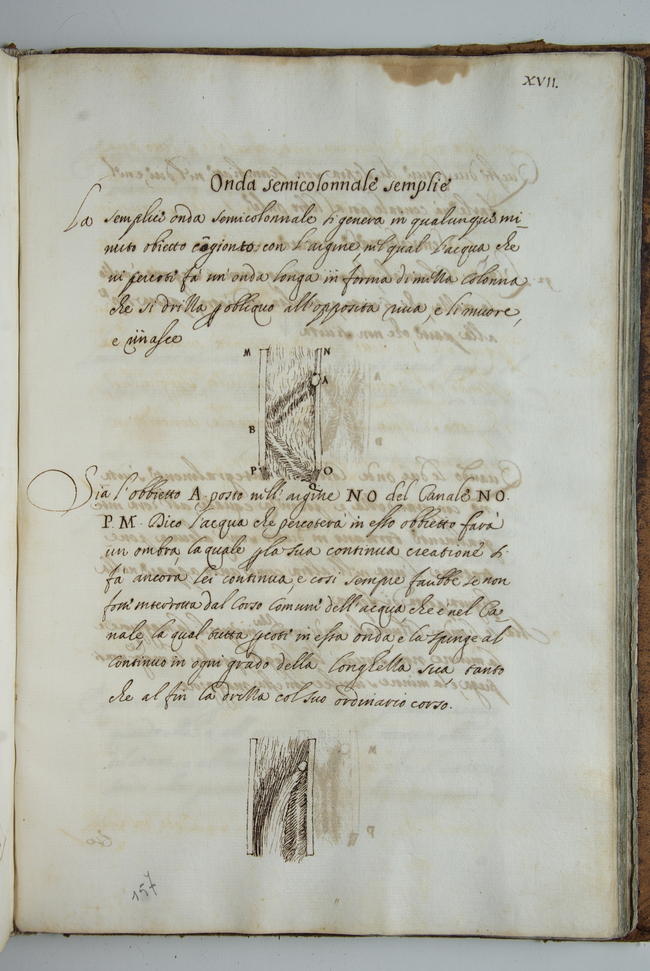 XVII.
Onda semicolonnale semplice
La semplice onda semicolonnale si genera in qualunque mi-
nuto obietto cōgionto con l'argine, nel qual l'acqua che
vi percote fà un' onda longa in forma di meza colonna
che si driza p obliquo all'opposita riva, e li muore,
e rinasce
M N
A
B
P O
Sia l'obbietto A posto nell'argine NO del Canale NO.
P. M. Dico l'acqua che percoterà in esso obbietto farà
un ombra, la quale p la sua continua creatione si
fà ancora lei continua e cosi sempre farebbe se non
fosse interrotta dal Corso Comune dell'acqua che e nel Ca-
nale, la qual tutta pcote in essa onda e la spinge al
continuo in ogni grado della longhezza sua, tanto
che al fin la driza col suo ordinario corso.
157